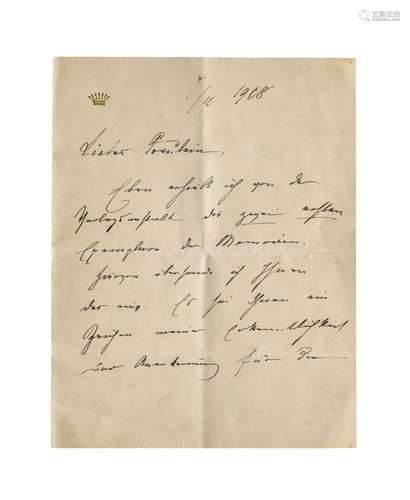 艺狐在线
1908
Liebes Fräulein,
Eben erhielt ich von der
Verlagsanstalt die ersten
Exemplare der Memoiren.
übersende ich Ihnen
Es sei Ihnen ein
Zeichen meiner Erkenntlichkeit
und Anerkennung für die